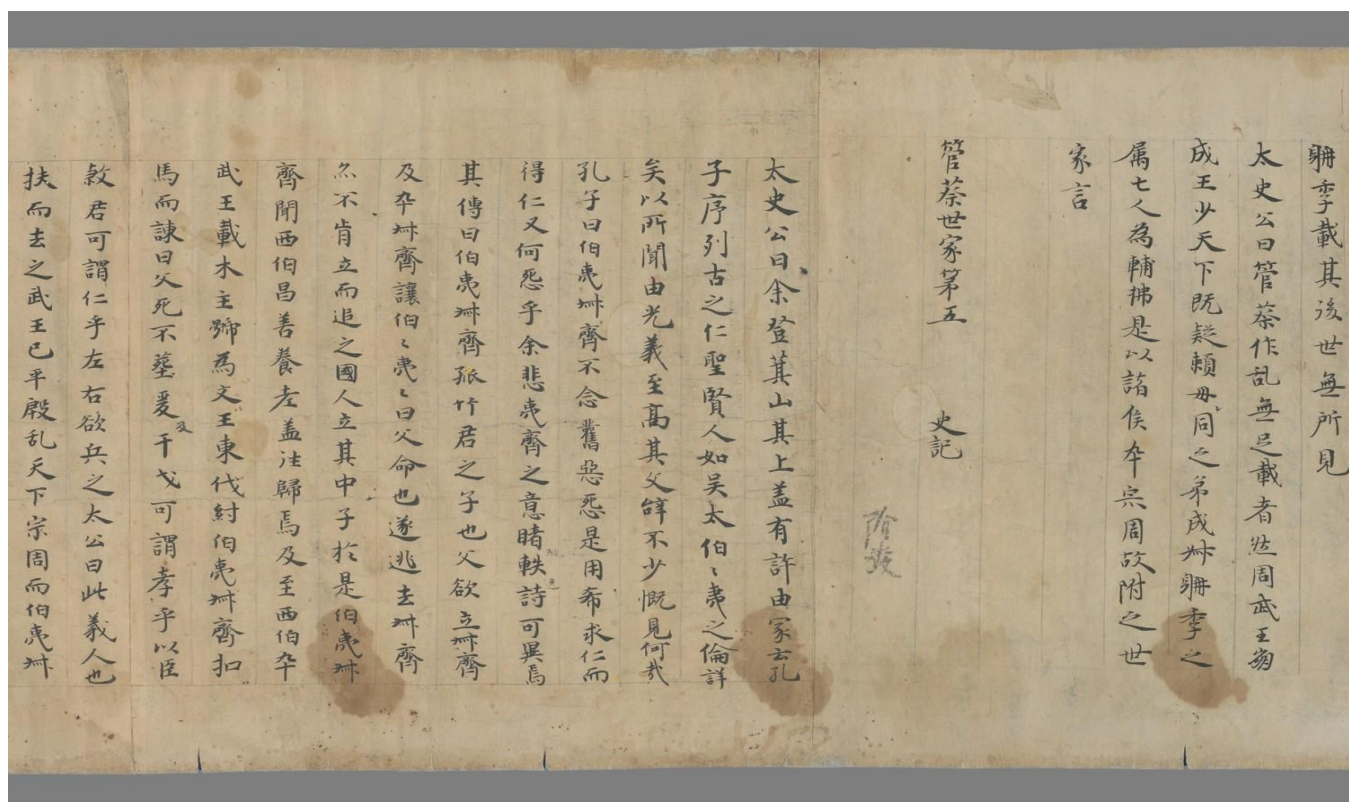 冊季載其後世無所見
太史公曰管蔡作乱無足載者然周武王崩
成王少天下既疑頼毋同之弟成卌冊季之
属七人為輔拂是以諸侯卒宗周故附之世
家言
管蔡世家第五 史記
太史公曰余登萁山其上盖有許由冢云孔
子序列古之仁聖賢人如吴太伯〻夷之倫詳
矣以所聞由光義至髙其文辞不少慨見何哉
孔子曰伯夷卌齊不念舊惡惌是用希求仁而
得仁又何惌乎余悲夷齊之意睹軼詩可異焉
其傳曰伯夷卌齊孤竹君之子也父欲立卌齊
及卒卌齊讓伯〻夷〻曰父命也遂逃去卌齊
亦不肯立而追之國人立其中子於是伯夷卌
齊聞西伯昌善養老盖往歸焉及至西伯卒
武王載木主號為文王東伐紂伯夷卌齊扣
馬而諫曰父死不塟爰及干戈可謂孝乎以臣
敘君可謂仁乎左右欲兵之太公曰此義人也
扶而去之武王已平殷乱天下宗周而伯夷卌